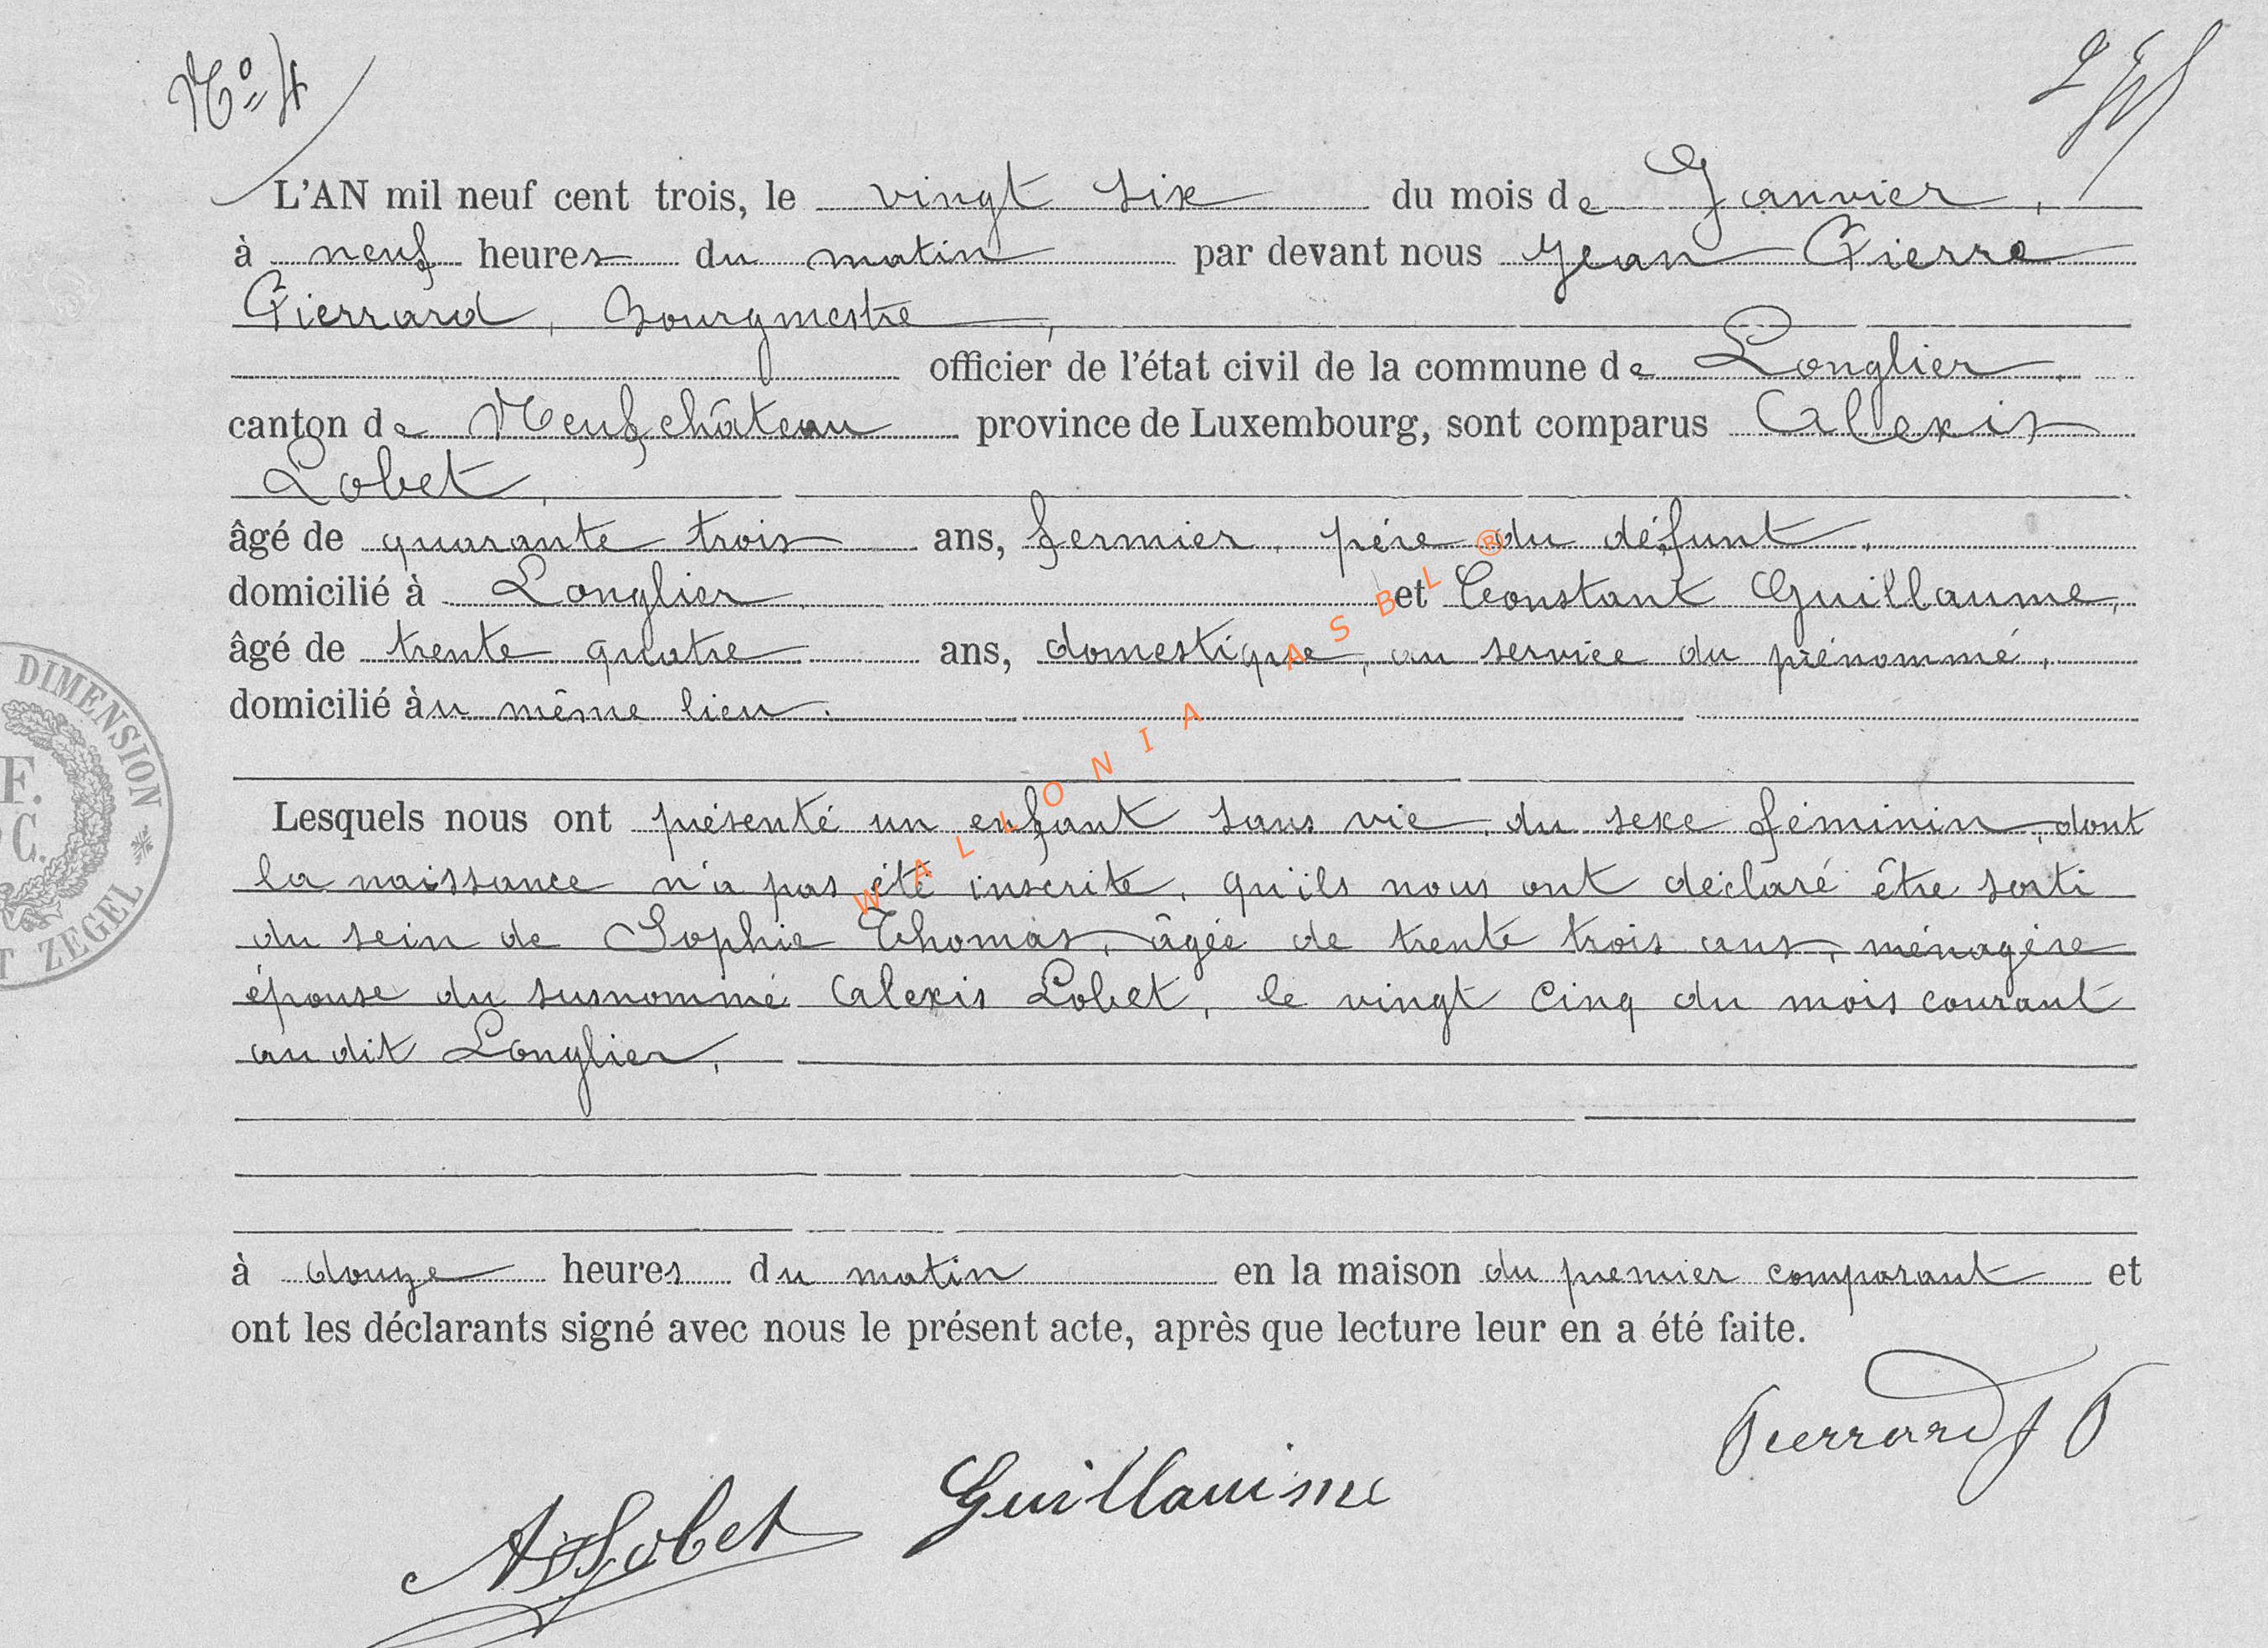 N° 4
L'AN mil neuf cent trois, le vingt six du mois de Janvier,
à neuf heures du matin par devant nous Jean Pierre
Pierrard, Bourgmestre,
officier de l'état civil de la commune de Longlier,
canton de Neufchâteau province de Luxembourg, sont comparus Alexis
Lobet,
âgé de quarante trois ans, fermier, père du défunt,
domicilié à Longlier, et Constant Guillaume,
âgé de trente quatre ans, domestique, au service du prénommé,
domicilié àu même lieu.
Lesquels nous ont présenté un enfant sans vie, du sexe féminin, dont
la naissance n'a pas été inscrite, qu'ils nous ont déclaré être sorti
du sein de Sophie Thomas, âgée de trente trois ans, ménagère
épouse du susnommé Alexis Lobet, le vingt cinq du mois courant
au dit Longlier,
à douze heures du matin en la maison du premier comparant et
ont les déclarants signé avec nous le présent acte, après que lecture leur en a été faite.
Pierrard J P
Guillaume
A Lobet
DIMENSION
F.
C.
T ZEGEL
WALLONIA ASBL ®